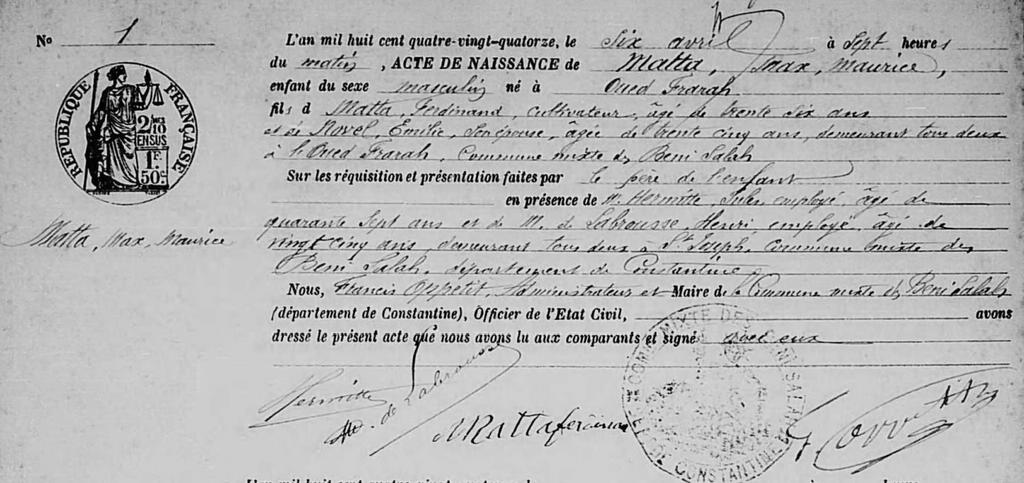 No 1
L'an mil huit cent quatre-vingt-quatorze, le six avril à sept heures
du matin, ACTE DE NAISSANCE de Matta, Max, Maurice,
enfant du sexe masculin né à Oued Frarah
fils d Matta, Ferdinand, cultivateur, âgé de trente six ans
et de Ravel, Emilie, son épouse, âgée de trente cinq ans, demeurant tous deux
à l'Oued Frarah, Commune mixte des Beni Salah
Sur les réquisition et présentation faites par le père de l'enfant
en présence de M. Hermitte, Jules, employé, âgé de
quarante sept ans et de M. de Labrousse, Henri, employé, âgé de
vingt cinq ans, demeurant tous deux à St Joseph, Commune mixte des
Beni Salah, département de Constantine
Nous, Francis Oppetit, Administrateur et Maire de la Commune mixte des Beni Salah
(département de Constantine), Officier de l'Etat Civil, avons
dressé le présent acte que nous avons lu aux comparants et signé avec eux
RÉPUBLIQUE FRANÇAISE
2/10 EN SUS
1F.
50c
Matta, Max, Maurice
Hermitte
de Labrousse
Matta ferdinand
COMMUNE MIXTE DES BENI-SALAH
DE CONSTANTINE
L'an mil huit cent quatre-vingt-quatorze, le